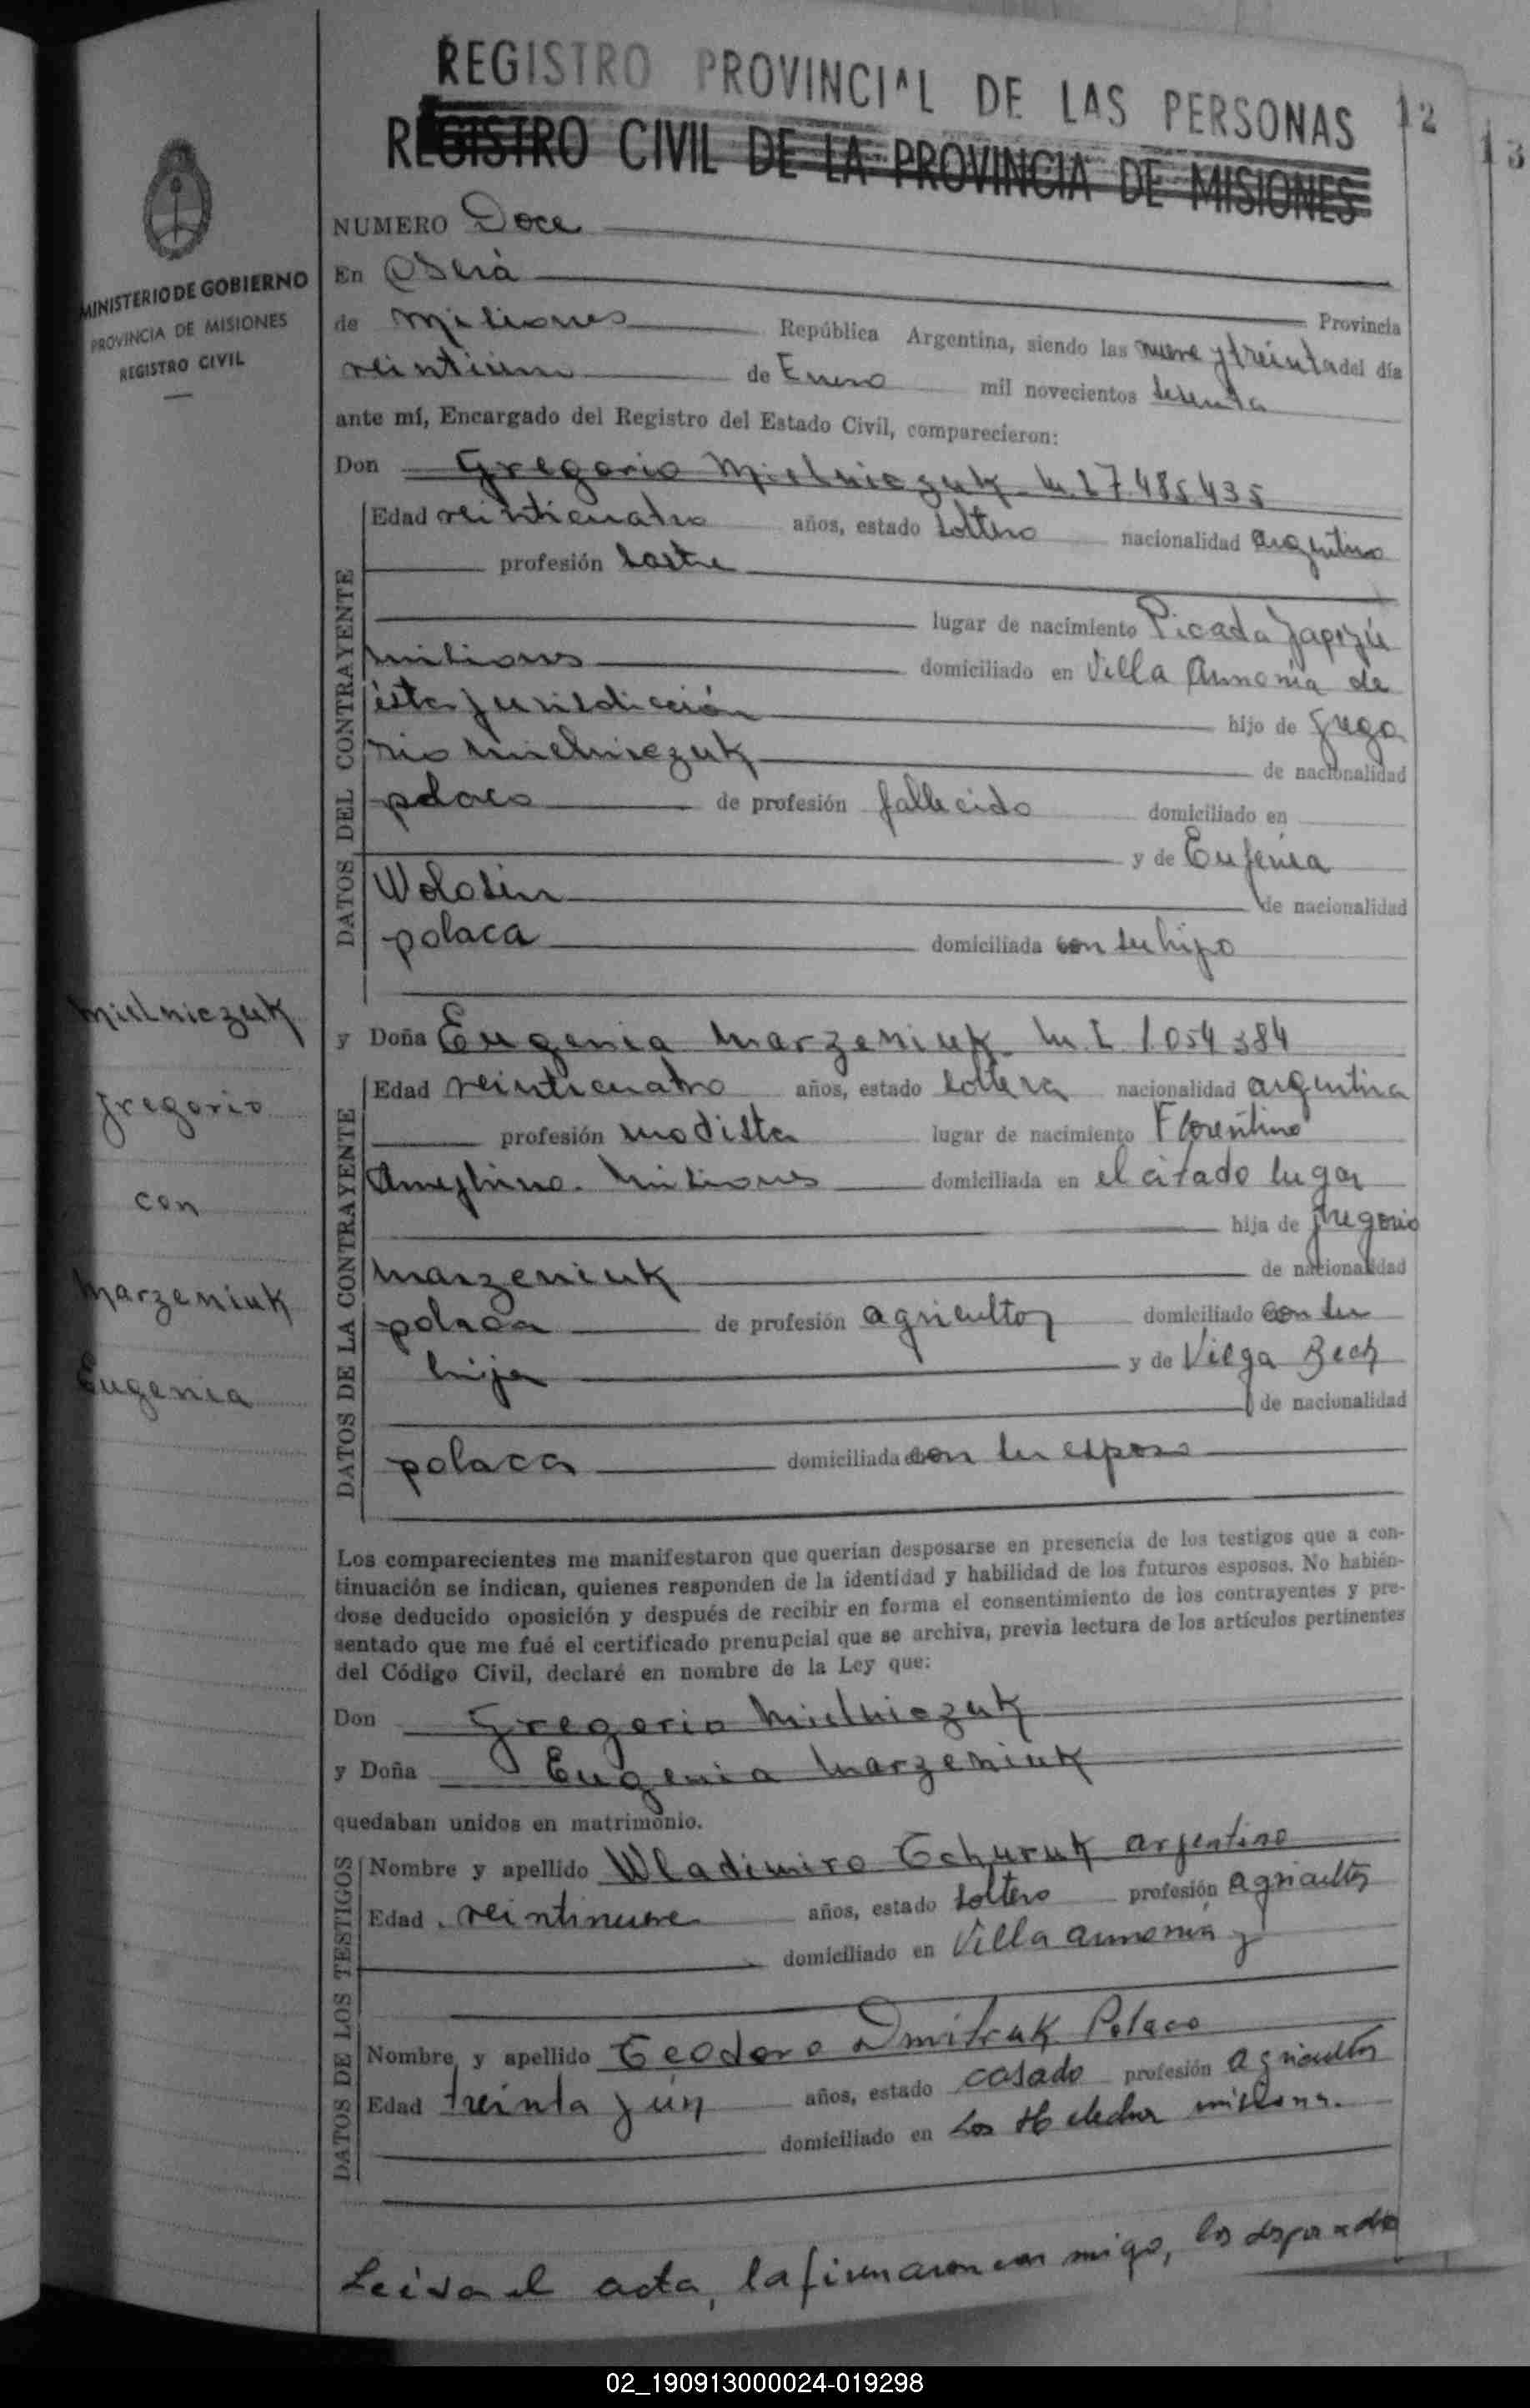 REGISTRO PROVINCIAL DE LAS PERSONAS 12
13
REGISTRO CIVIL DE LA PROVINCIA DE MISIONES
MINISTERIO DE GOBIERNO
PROVINCIA DE MISIONES
REGISTRO CIVIL
NUMERO Doce
En Oberá
Provincia
de Misiones República Argentina, siendo las nueve y treinta del día
veintiuno de Enero mil novecientos setenta
ante mí, Encargado del Registro del Estado Civil, comparecieron:
Don Gregorio Mielniczuk M.I 7.485.435
DATOS DEL CONTRAYENTE
Edad veinticuatro años, estado soltero nacionalidad argentino
profesión sastre
lugar de nacimiento Picada Yapeyú
Misiones domiciliado en Villa Armonia de
ésta jurisdicción hijo de Grego
rio Mielniczuk de nacionalidad
polaco de profesión fallecido domiciliado en
y de Eufenia
Wolosin de nacionalidad
polaca domiciliada con su hijo
Mielniczuk
Gregorio
con
Marzeniuk
Eugenia
y Doña Eugenia Marzeniuk M.I 1.054.384
DATOS DE LA CONTRAYENTE
Edad veinticuatro años, estado soltera nacionalidad argentina
profesión modista lugar de nacimiento Florentino
Ameghino. Misiones domiciliada en el citado lugar
hija de Gregorio
Marzeniuk de nacionalidad
polaca de profesión agricultor domiciliado con su
hija y de Vilga Bech
de nacionalidad
polaca domiciliada con su esposo
Los comparecientes me manifestaron que querían desposarse en presencia de los testigos que a con-
tinuación se indican, quienes responden de la identidad y habilidad de los futuros esposos. No habién-
dose deducido oposición y después de recibir en forma el consentimiento de los contrayentes y pre-
sentado que me fué el certificado prenupcial que se archiva, previa lectura de los artículos pertinentes
del Código Civil, declaré en nombre de la Ley que:
Don Gregorio Mielniczuk
y Doña Eugenia Marzeniuk
quedaban unidos en matrimonio.
DATOS DE LOS TESTIGOS
Nombre y apellido Wladimiro Tchuruk argentino
Edad veintinueve años, estado soltero profesión agricultor
domiciliado en Villa armonia y
Nombre y apellido Teodoro Dmitruk Polaco
Edad treinta y un años, estado casado profesión agricultor
domiciliado en Los Helechos misiones.
Leída el acta, la firmaron con migo, los desposados
02_190913000024-019298